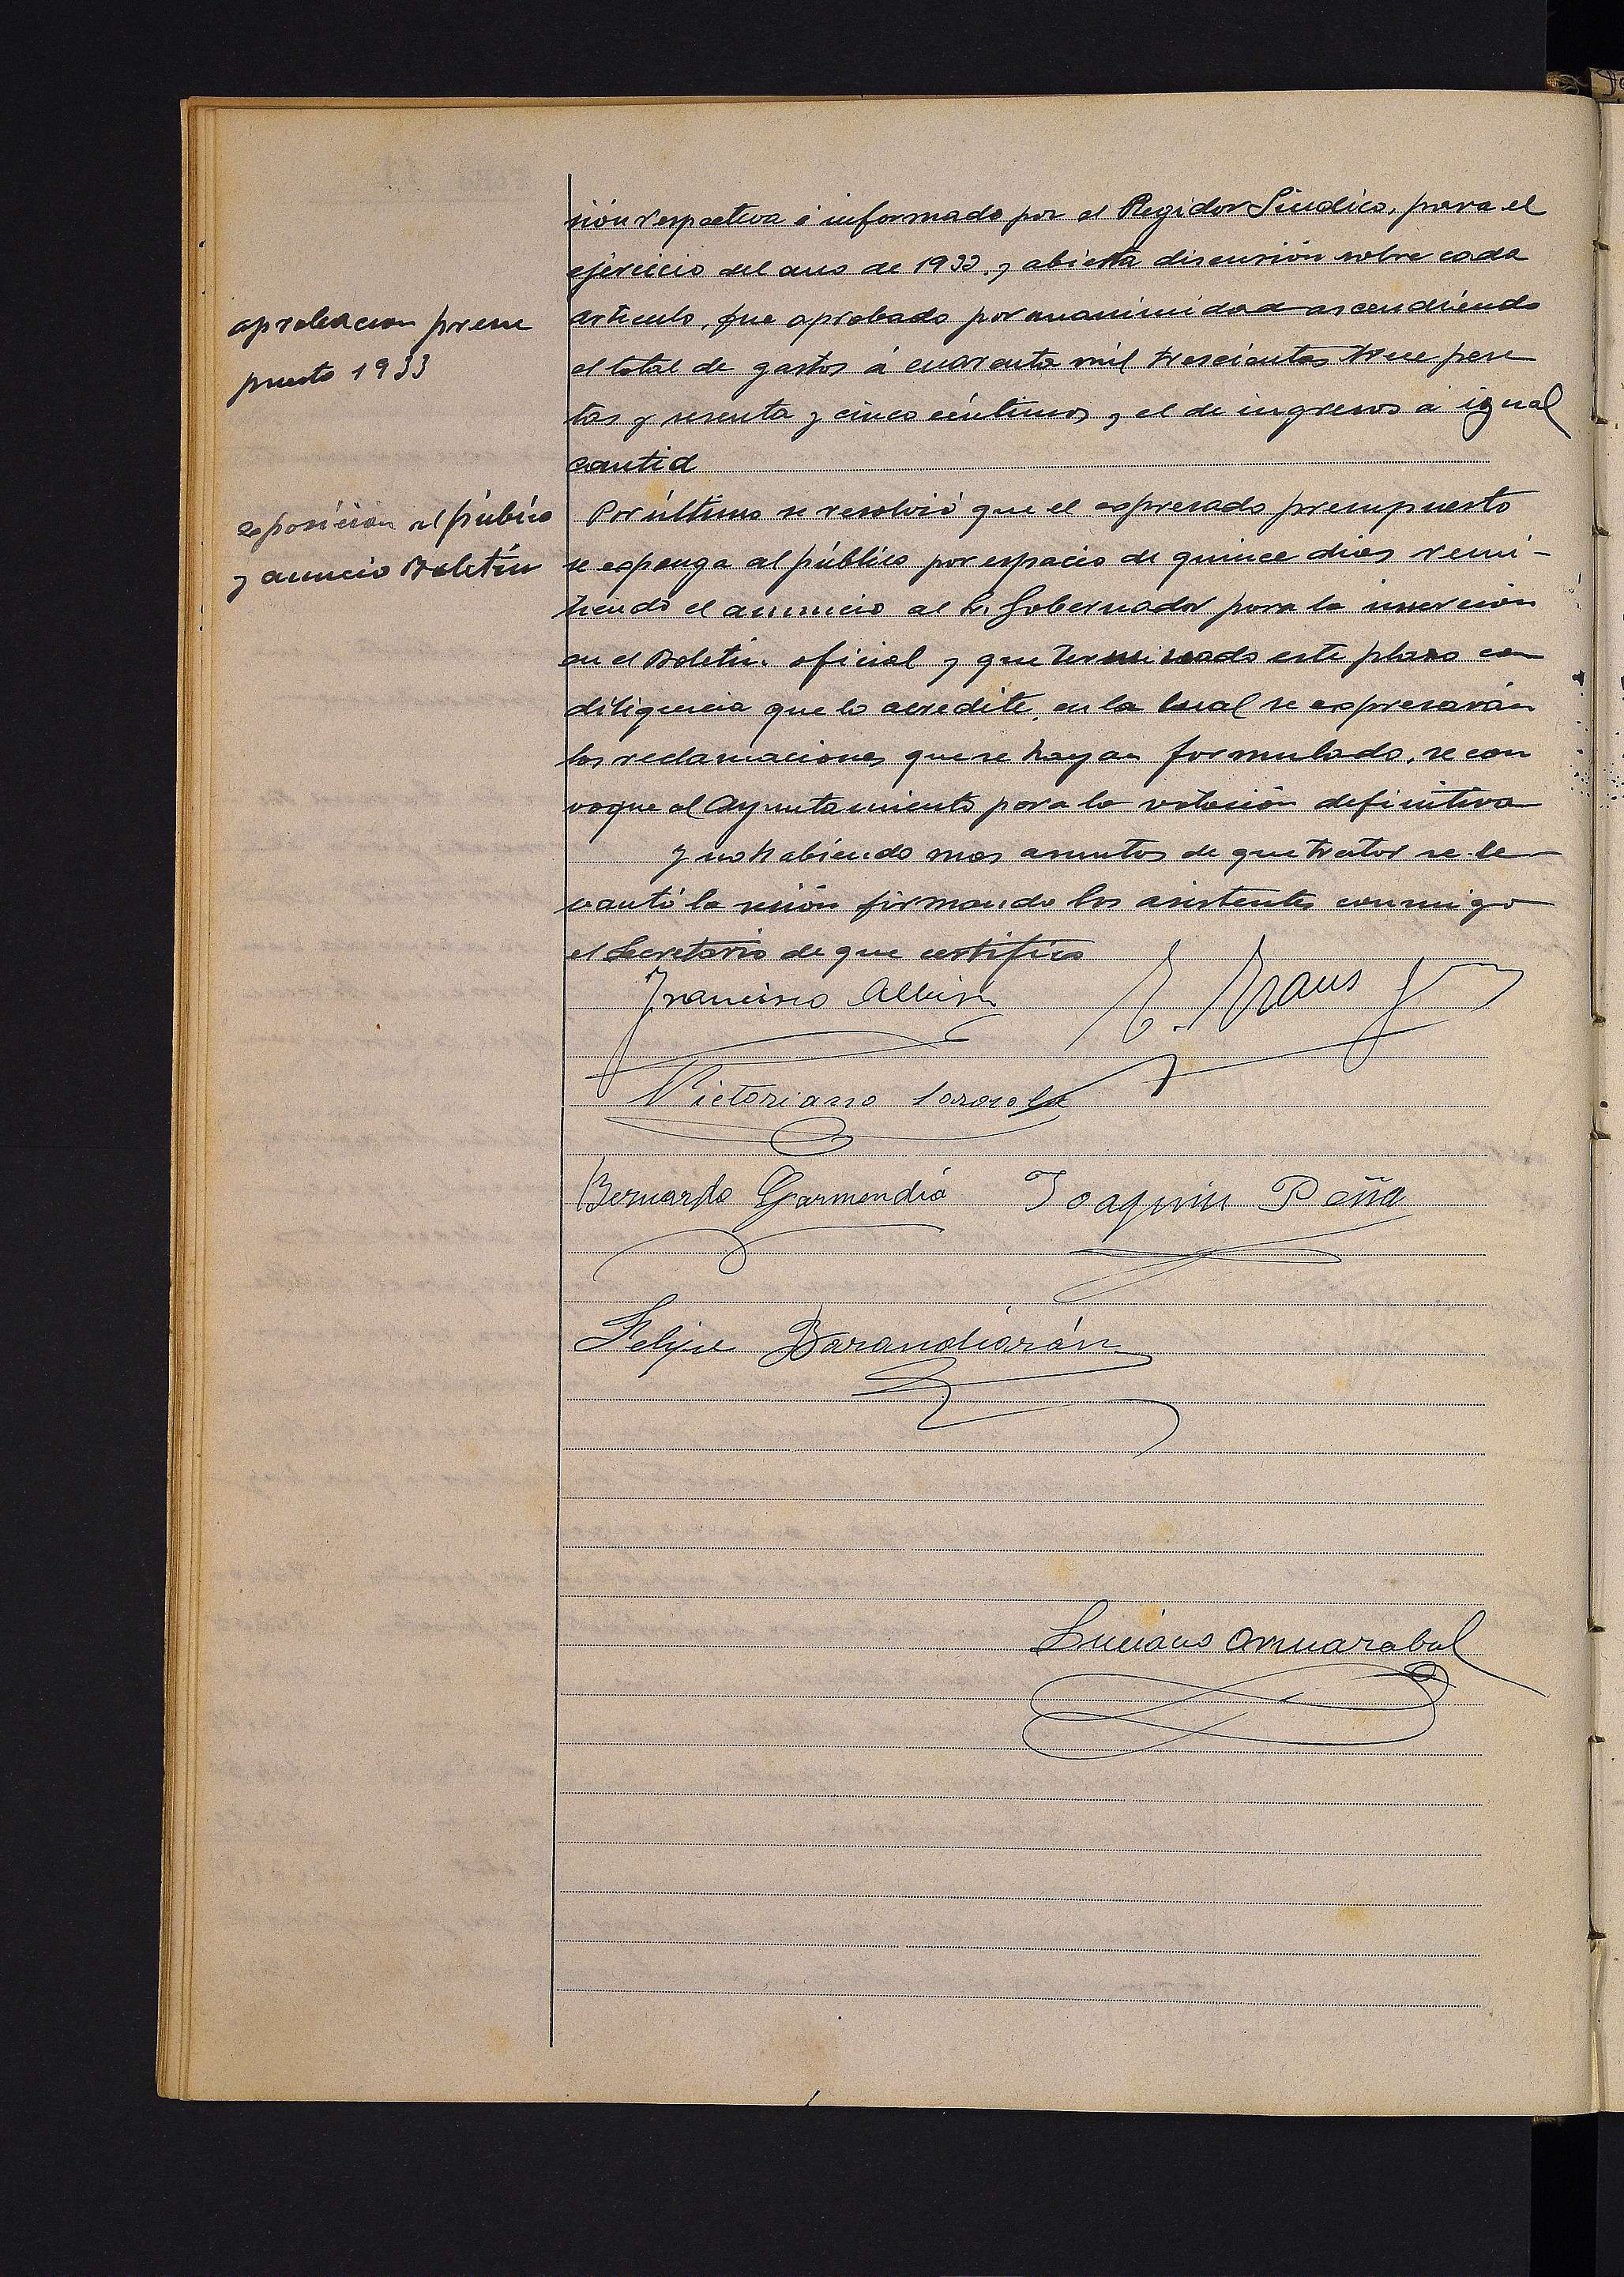 sión respectiva é informado por el Regidor Síndico, para el
ejercicio del ano de 1933, y abierta discusión sobre cada
aprobacion presu
puesto 1933
articulo, fue aprobado por unanimidad ascendiendo
el total de gastos á cuarenta mil trescientas trece pese
tas y sesenta y cinco céntimos y el de ingresos á igual
cantid
exposición al público
y anuncio Boletín
Por último se resolvió que el espresado presupuesto
se esponga al público por espacio de quince dias remi-
tiendo el anuncio al Sr. Gobernador para la inserción
en el Boletin oficial y que terminado este plazo con
diligencia que lo acredite, en la cual se expresarán
las reclamaciones que se hayan formulado, se con
voque al Ayuntamiento para la votación definitiva
y no habiendo mas asuntos de que tratar se le
vantó la sesión firmando los asistentes conmigo
el Secretario de que certifico
Francisco Albisu
Victoriano Sorosola
Bernardo Garmendia Joaquin Peña
Felipe Barandiarán
Luciano Amuarabal